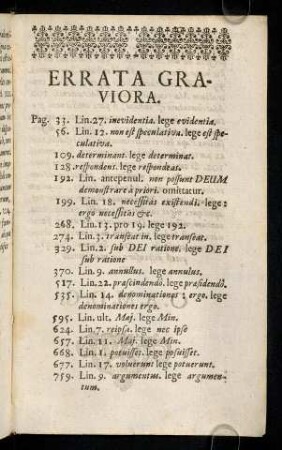 ERRATA GRA-
VIORA.
Pag. 33. Lin. 27. inevidentia. lege evidentia.
56. Lin. 12. non est speculativa. lege est spe-
culativa.
109. determinant. lege determinat.
128. respondens. lege respondeas.
192. Lin. antepenul. non possunt DEUM
demonstrare à priori. omittatur.
199. Lin. 18. necessitas existendi. lege:
ergo necessitas &c.
268. Lin. 13. pro 19. lege 192.
274. Lin. 3. transeat in. lege transeat.
329. Lin. 2. sub DEI ratione. lege DEI
sub ratione
370. Lin. 9. annullus. lege annulus.
517. Lin. 22. præscindendo. lege præsidendo.
535. Lin. 14. denominationes: ergo. lege
denominationes ergo.
595. Lin. ult. Maj. lege Min.
624. Lin. 7. reipsa. lege nec ipse
657. Lin. 11. Maj. lege Min.
668. Lin. 1. potuisset. lege posuisset.
677. Lin. 17. voluerunt lege potuerunt.
759. Lin. 9. argumentus. lege argumen-
tum.